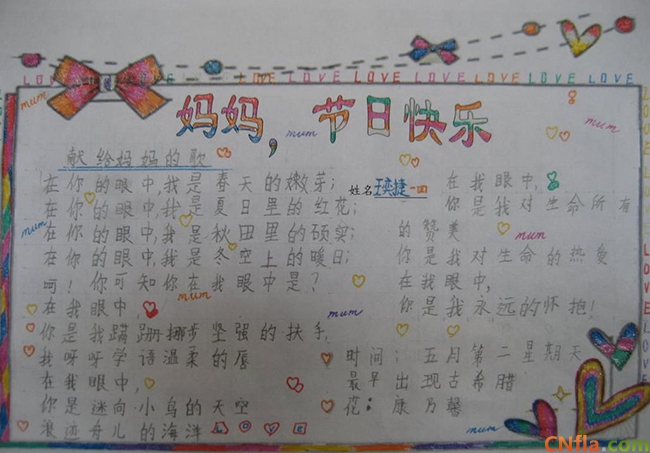 LOVE LOVE LOVE LOVE LOVE LOVE LOVE LOVE LOVE LOVE
妈妈，节日快乐
mum mum mum
献给妈妈的歌
姓名 王奕捷 一四
在你的眼中，我是春天的嫩芽；
在你的眼中，我是夏日里的红花；
在你的眼中，我是秋田里的硕实；
在你的眼中，我是冬空上的暖日；
呵！你可知你在我眼中是？
在我眼中，
你是我蹒跚挪步坚强的扶手，
我呀呀学语温柔的唇
在我眼中，
你是迷向小鸟的天空
浪迹舟儿的海洋
LOVE
在我眼中，
你是我对生命所有
的赞美
你是我对生命的热爱
在我眼中，
你是我永远的怀抱！
mum mum mum mum mum
时间：五月第二星期天
最早出现古希腊
花：康乃馨
CNfla.com